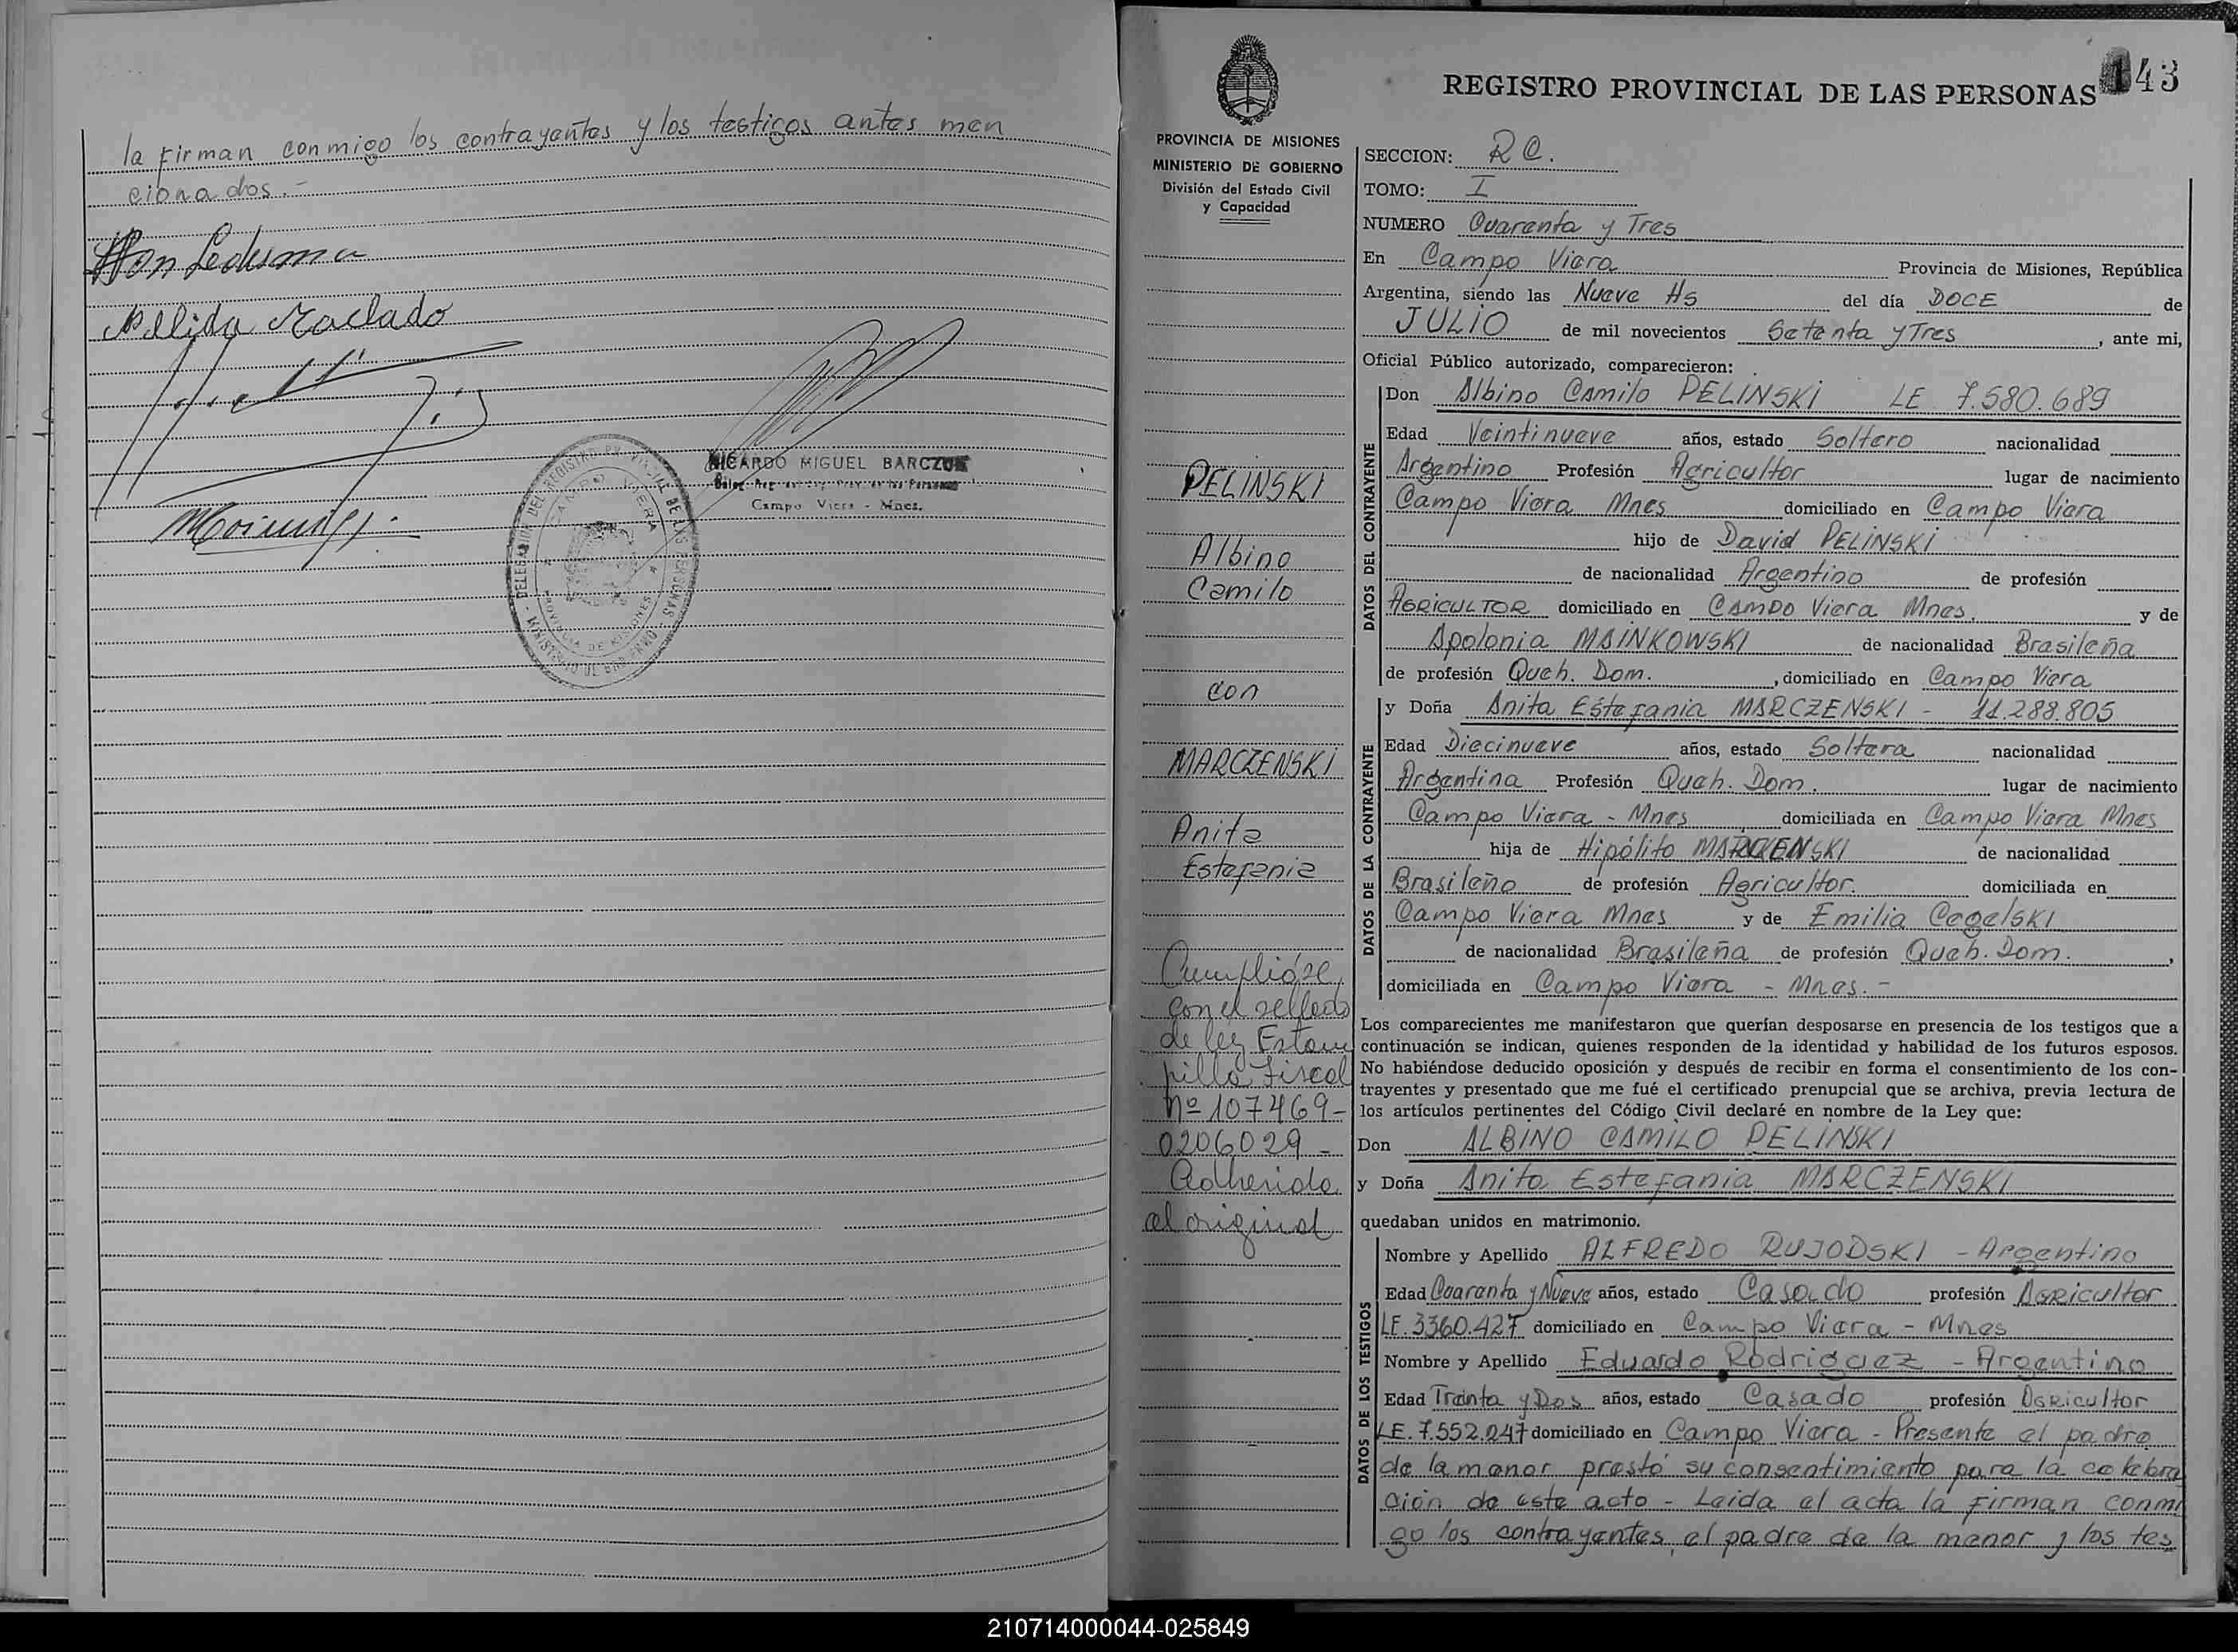 la firman conmigo los contrayentes y los testigos antes men
cionados.-
Ledesma
Nelida Machado
RICARDO MIGUEL BARCZUK
Campo Viera - Mnes.
143
REGISTRO PROVINCIAL DE LAS PERSONAS
PROVINCIA DE MISIONES
MINISTERIO DE GOBIERNO
División del Estado Civil
y Capacidad
PELINSKI
Albino
Camilo
con
MARCZENSKI
Anita
Estefania
Cumplióse
con el sellado
de ley Estam
pilla Fiscal
Nº 107469-
0206029-
Adherida
al original
SECCION: RC.
TOMO: I
NUMERO Cuarenta y Tres
En Campo Viera Provincia de Misiones, República
Argentina, siendo las Nueve Hs del día DOCE de
JULIO de mil novecientos Setenta y Tres, ante mi,
Oficial Público autorizado, comparecieron:
DATOS DEL CONTRAYENTE
Don Albino Camilo PELINSKI LE 7.580.689
Edad Veintinueve años, estado Soltero nacionalidad
Argentino Profesión Agricultor lugar de nacimiento
Campo Viera Mnes domiciliado en Campo Viera
hijo de David PELINSKI
de nacionalidad Argentino de profesión
AGRICULTOR domiciliado en Campo Viera Mnes. y de
Apolonia MAINKOWSKI de nacionalidad Brasileña
de profesión Queh. Dom., domiciliado en Campo Viera
DATOS DE LA CONTRAYENTE
y Doña Anita Estefania MARCZENSKI - 11.288.805
Edad Diecinueve años, estado Soltera nacionalidad
Argentina Profesión Queh. Dom. lugar de nacimiento
Campo Viera - Mnes domiciliada en Campo Viera Mnes
hija de Hipólito MARCZENSKI de nacionalidad
Brasileño de profesión Agricultor. domiciliada en
Campo Viera Mnes y de Emilia Cegelski
de nacionalidad Brasileña de profesión Queh. Dom.,
domiciliada en Campo Viera - Mnes.-
Los comparecientes me manifestaron que querían desposarse en presencia de los testigos que a
continuación se indican, quienes responden de la identidad y habilidad de los futuros esposos.
No habiéndose deducido oposición y después de recibir en forma el consentimiento de los con-
trayentes y presentado que me fué el certificado prenupcial que se archiva, previa lectura de
los artículos pertinentes del Código Civil declaré en nombre de la Ley que:
Don ALBINO CAMILO PELINSKI
y Doña Anita Estefania MARCZENSKI
quedaban unidos en matrimonio.
DATOS DE LOS TESTIGOS
Nombre y Apellido ALFREDO RUJODSKI - Argentino
Edad Cuarenta y Nueve años, estado Casado profesión Agricultor
LE. 3360.427 domiciliado en Campo Viera - Mnes
Nombre y Apellido Eduardo Rodriguez - Argentino
Edad Treinta y Dos años, estado Casado profesión Agricultor
LE. 7.552.247 domiciliado en Campo Viera - Presente el padre
de la menor prestó su consentimiento para la celebra
ción de este acto - Leida el acta la firman conmi
go los contrayentes, el padre de la menor y los tes
210714000044-025849